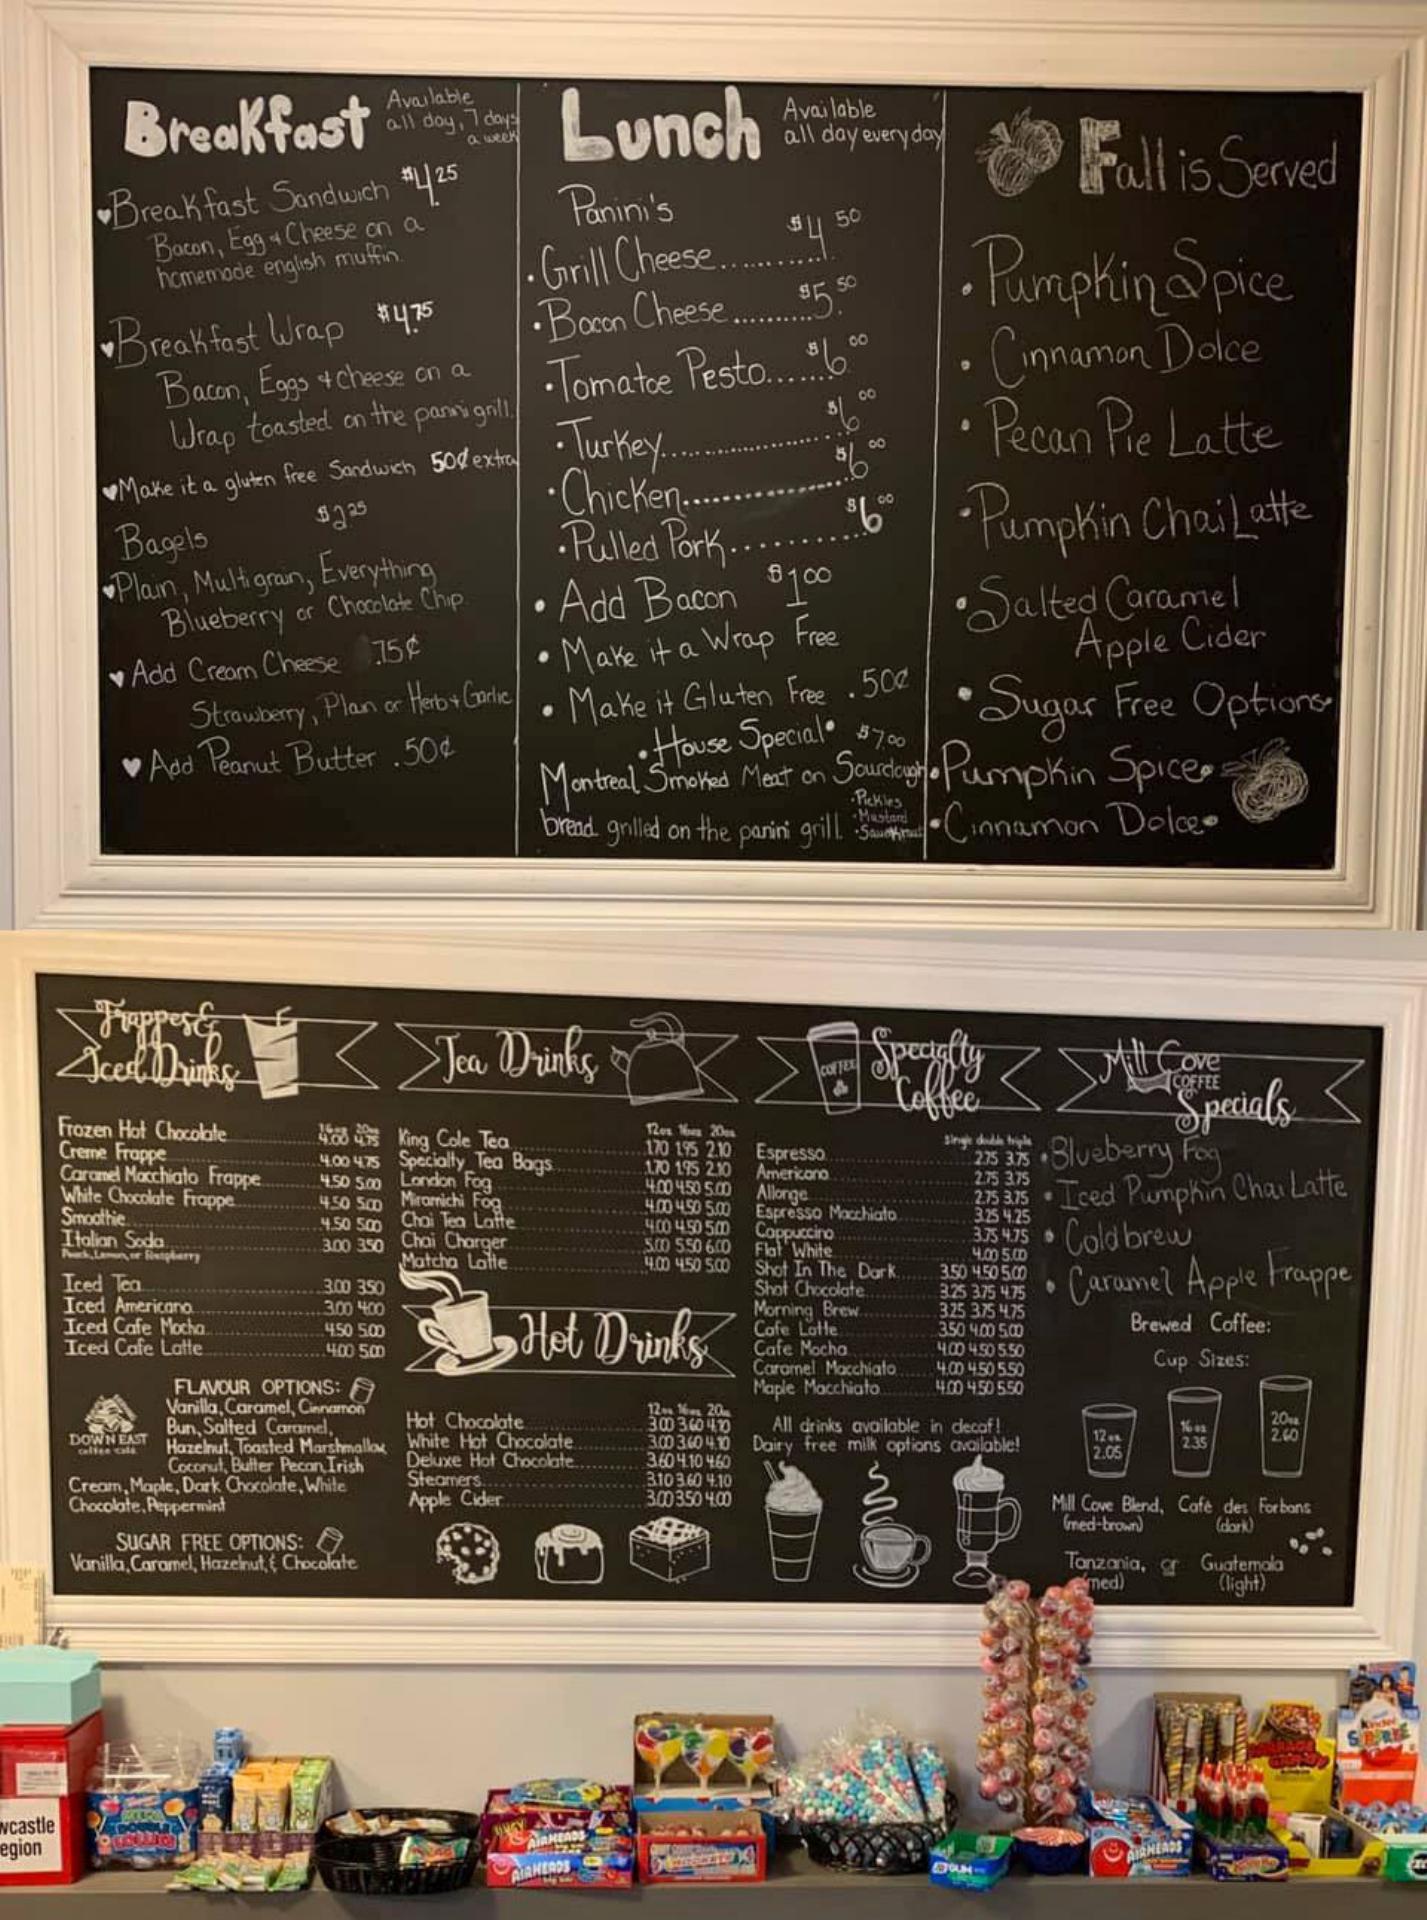 Breakfast
Available
all day, 7 days
a week
Breakfast Sandwich $4.25
Bacon, Egg & Cheese on a
homemade english muffin.
Breakfast Wrap $4.75
Bacon, Eggs & cheese on a
Wrap toasted on the panni grill.
Make it a gluten free Sandwich 50¢ extra
Bagels $2.25
Plain, Multigrain, Everything
Blueberry or Chocolate Chip.
Add Cream Cheese .75¢
Strawberry, Plain or Herb & Garlic
Add Peanut Butter .50¢
Lunch
Available
all day every day
Panini's
Grill Cheese........... $4.50
Bacon Cheese.......... $5.50
Tomatoe Pesto....... $6.00
Turkey................... $6.00
Chicken................. $6.00
Pulled Pork........... $6.00
Add Bacon $1.00
Make it a Wrap Free
Make it Gluten Free .50¢
House Special $7.00
Montreal Smoked Meat on Sourdough
bread grilled on the panini grill
Pickles
Mustard
Sauerkraut
Fall is Served
Pumpkin Spice
Cinnamon Dolce
Pecan Pie Latte
Pumpkin Chai Latte
Salted Caramel
Apple Cider
Sugar Free Options
Pumpkin Spice
Cinnamon Dolce
Frappes &
Iced Drinks
16oz 20oz
Frozen Hot Chocolate 4.00 4.75
Creme Frappe 4.00 4.75
Caramel Macchiato Frappe 4.50 5.00
White Chocolate Frappe 4.50 5.00
Smoothie 4.50 5.00
Italian Soda 3.00 3.50
Peach, Lemon, or Raspberry
Iced Tea 3.00 3.50
Iced Americano 3.00 4.00
Iced Cafe Mocha 4.50 5.00
Iced Cafe Latte 4.00 5.00
FLAVOUR OPTIONS:
Vanilla, Caramel, Cinnamon
Bun, Salted Caramel,
Hazelnut, Toasted Marshmallow
Coconut, Butter Pecan, Irish
Cream, Maple, Dark Chocolate, White
Chocolate, Peppermint
DOWN EAST
coffee cafe
SUGAR FREE OPTIONS:
Vanilla, Caramel, Hazelnut, & Chocolate
Tea Drinks
12oz 16oz 20oz
King Cole Tea 1.70 1.95 2.10
Specialty Tea Bags 1.70 1.95 2.10
London Fog 4.00 4.50 5.00
Miramichi Fog 4.00 4.50 5.00
Chai Tea Latte 4.00 4.50 5.00
Chai Charger 5.00 5.50 6.00
Matcha Latte 4.00 4.50 5.00
Hot Drinks
12oz 16oz 20oz
Hot Chocolate 3.00 3.60 4.10
White Hot Chocolate 3.00 3.60 4.10
Deluxe Hot Chocolate 3.60 4.10 4.60
Steamers 3.10 3.60 4.10
Apple Cider 3.00 3.50 4.00
COFFEE
Specialty
Coffee
single double triple
Espresso 2.75 3.75
Americano 2.75 3.75
Allonge 2.75 3.75
Espresso Macchiato 3.25 4.25
Cappuccino 3.75 4.75
Flat White 4.00 5.00
Shot In The Dark 3.50 4.50 5.00
Shot Chocolate 3.25 3.75 4.75
Morning Brew 3.25 3.75 4.75
Cafe Latte 3.50 4.00 5.00
Cafe Mocha 4.00 4.50 5.50
Caramel Macchiato 4.00 4.50 5.50
Maple Macchiato 4.00 4.50 5.50
All drinks available in decaf!
Dairy free milk options available!
Mill Cove
COFFEE
Specials
Blueberry Fog
Iced Pumpkin Chai Latte
Cold brew
Caramel Apple Frappe
Brewed Coffee:
Cup Sizes:
12oz
2.05
16oz
2.35
20oz
2.60
Mill Cove Blend, Café des Forbans
(med-brown) (dark)
Tanzania, or Guatemala
(med) (light)
wcastle
egion
AIRHEADS
AIRHEADS
AIRHEADS
Kinder